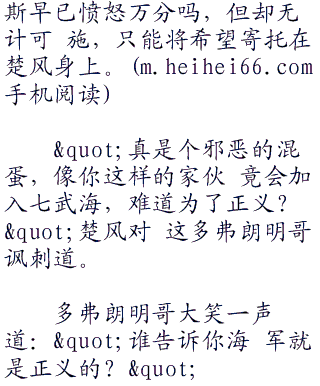 斯早已愤怒万分吗，但却无
计可 施，只能将希望寄托在
楚风身上。(m.heihei66.com
手机阅读)
&quot;真是个邪恶的混
蛋，像你这样的家伙 竟会加
入七武海，难道为了正义？
&quot;楚风对 这多弗朗明哥
讽刺道。
多弗朗明哥大笑一声
道：&quot;谁告诉你海 军就
是正义的？&quot;